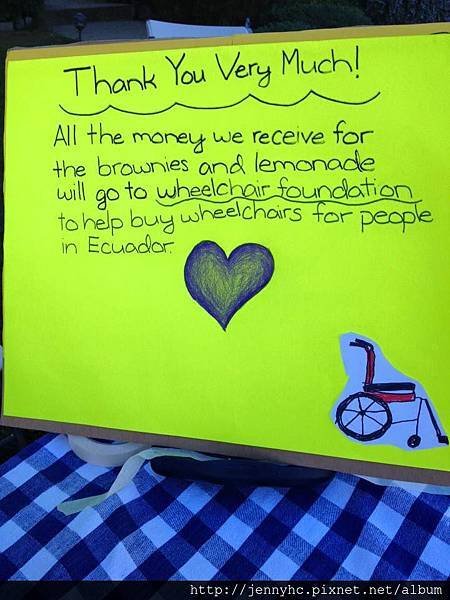 Thank You Very Much!
All the money we receive for
the brownies and lemonade
will go to wheelchair foundation
to help buy wheelchairs for people
in Ecuador.
http://jennyhc.pixnet.net/album